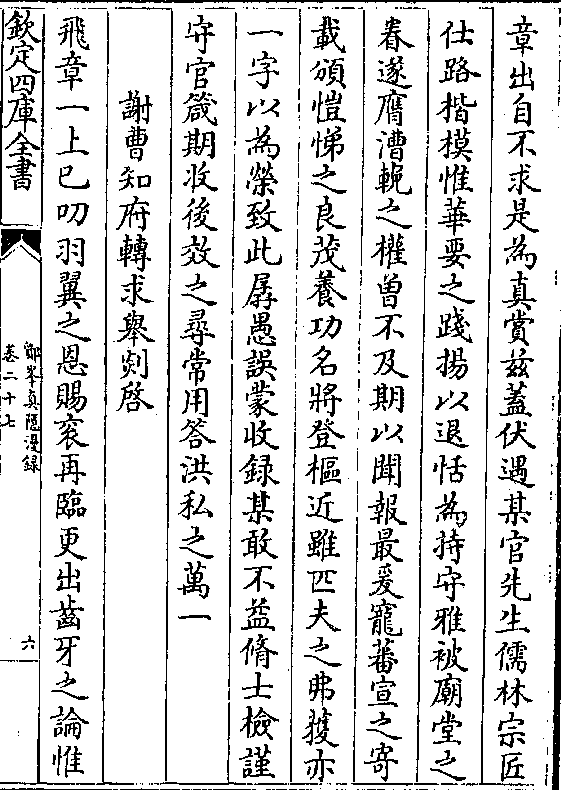 章出自不求是為真賞兹蓋伏遇某官先生儒林宗匠
仕路楷模惟華要之踐揚以退恬為持守雅被廟堂之
眷遂膺漕輓之權曾不及期以聞報最爰寵蕃宣之寄
載頒愷悌之良茂養功名將登樞近雖匹夫之弗獲亦
一字以為榮致此孱愚誤蒙收録某敢不益脩士檢謹
守官箴期收後效之尋常用答洪私之萬一
謝曹知府轉求舉剡啓
飛章一上已叨羽翼之恩賜衮再臨更出齒牙之論惟
欽定四庫全書
鄮峯真隠漫録
卷二十七
六